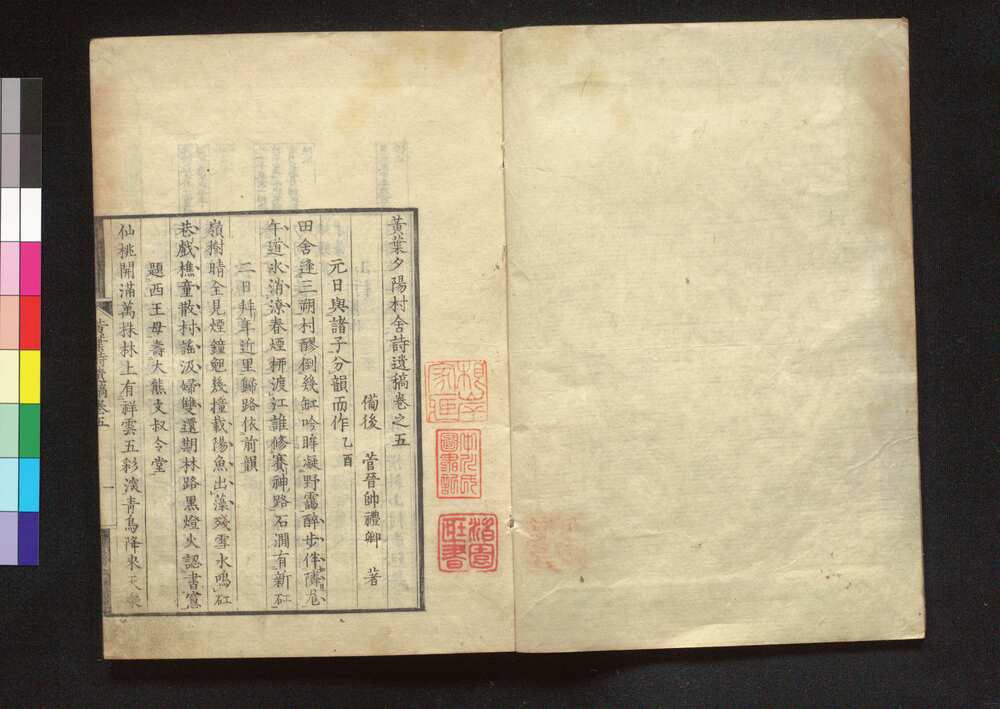 黃葉夕陽村舍詩遺稿卷之五
備後　菅晉帥禮卿　著
元日與諸子分韻而作乙酉
田舍逢三朔村醪倒幾缸吟眸凝野靄醉步伴隣尨
午道氷消滾春煙栟渡江誰修賽神路石澗有新矼
二日拜年近里歸路依前韻
嶺樹晴全見煙鐘幾撞載陽魚出藻殘雪水鳴矼
巷戲樵童散村謠汲婦雙還期林路黑燈火認書窻
題西王母壽大熊文叔令堂
仙桃開滿萬株林上有祥雲五彩深青鳥降來
黃葉詩遺稿卷五
一